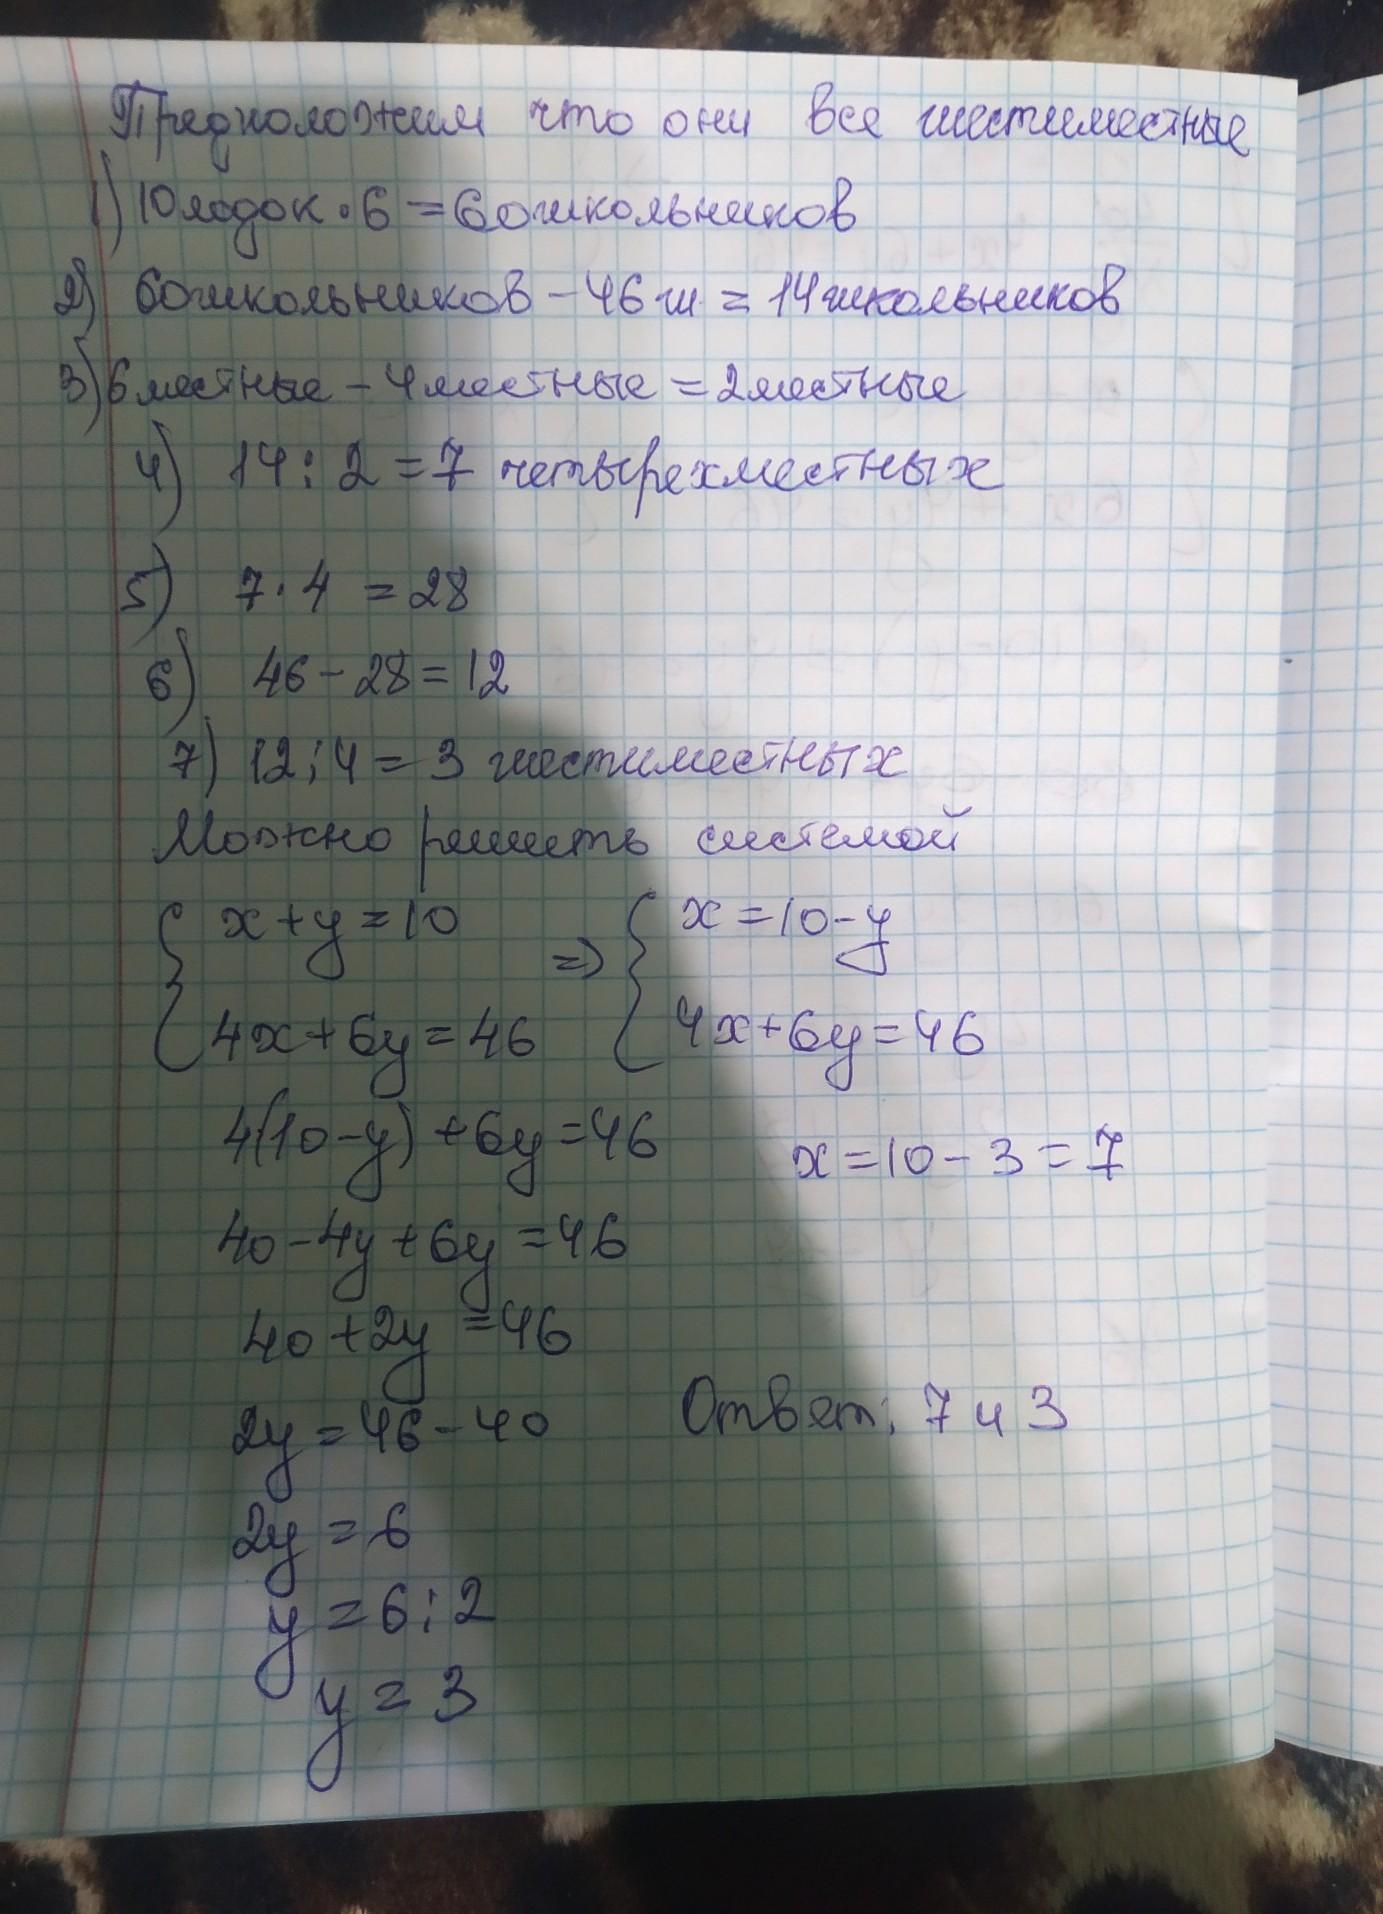 Предположим что они все шестиместные
1) 10 лодок · 6 = 60 школьников
2) 60 школьников – 46 ш. = 14 школьников
3) 6 местные – 4 местные = 2 местные
4) 14 : 2 = 7 четырехместных
5) 7 · 4 = 28
6) 46 – 28 = 12
7) 12 : 4 = 3 шестиместных
Можно решить системой
{ x + y = 10 => { x = 10 – y
4x + 6y = 46 4x + 6y = 46
4(10 – y) + 6y = 46 x = 10 – 3 = 7
40 – 4y + 6y = 46
40 + 2y = 46
2y = 46 – 40 Ответ: 7 и 3
2y = 6
y = 6 : 2
y = 3